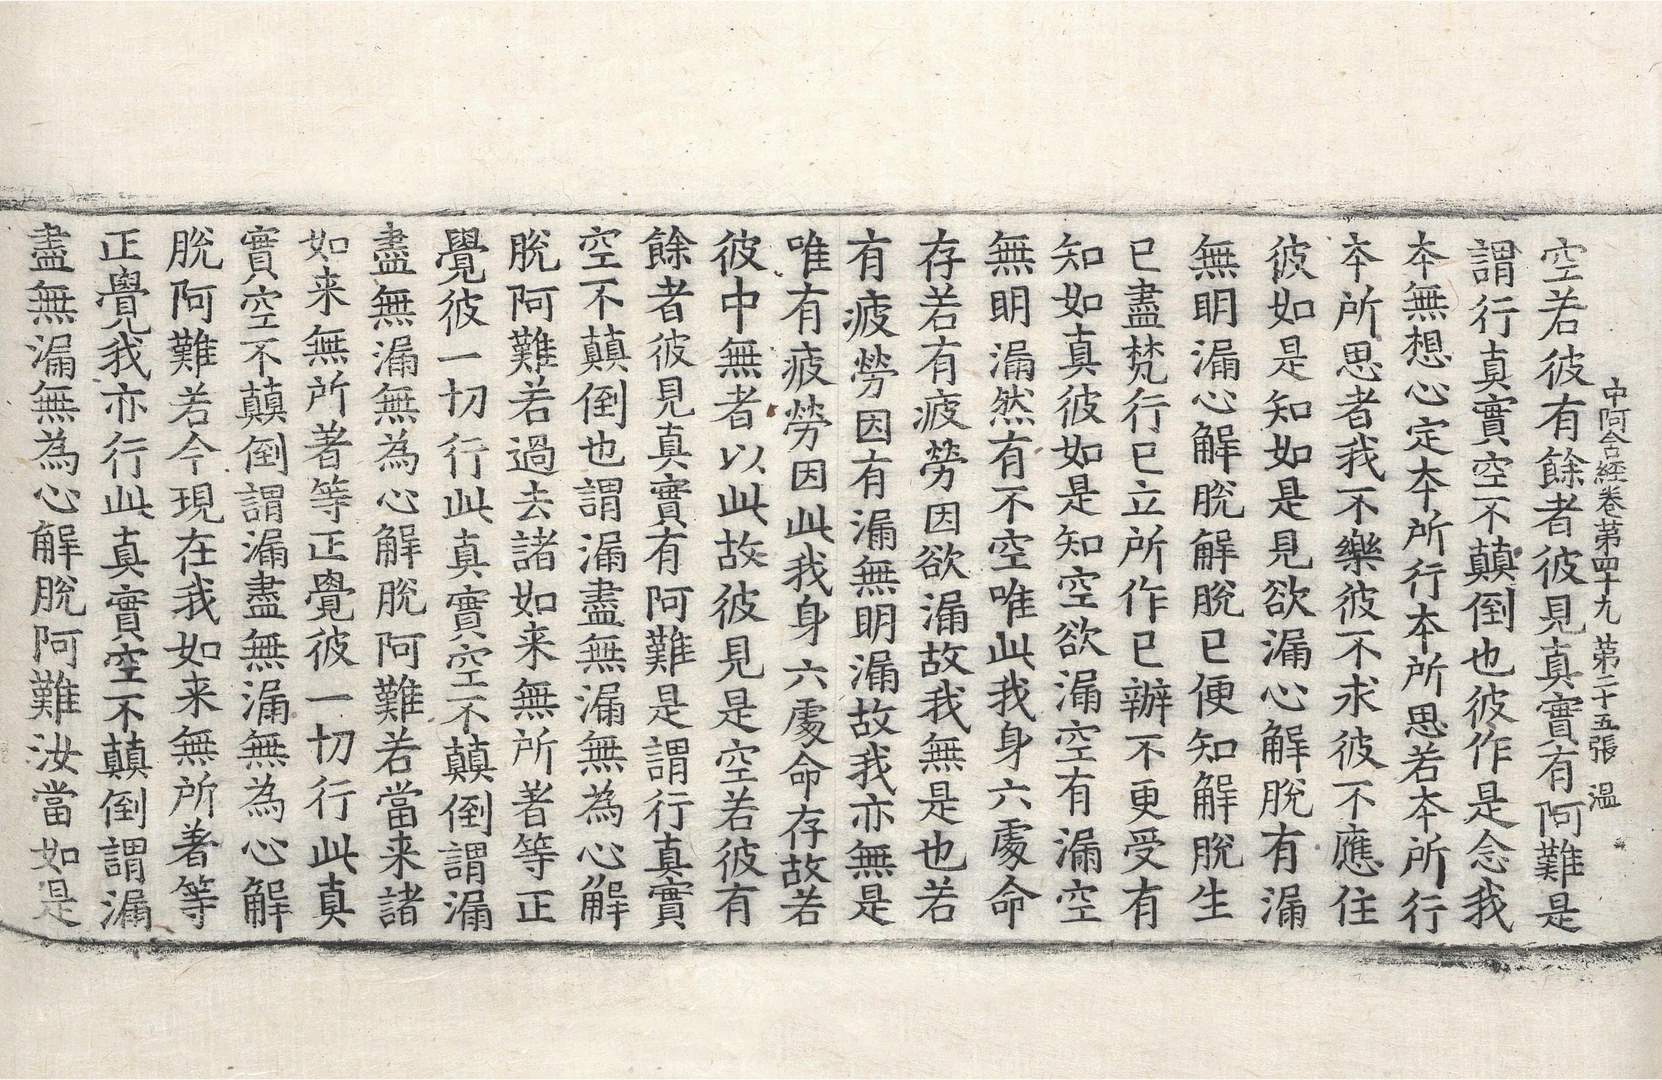 中阿含経卷第四十九 第二十五張 温
空若彼有餘者彼見真實有阿難是
謂行真實空不顛倒也彼作是念我
本無想心定本所行本所思若本所行
本所思者我不樂彼不求彼不應住
彼如是知如是見欲漏心解脫有漏
無明漏心解脫解脫已便知解脫生
已盡梵行已立所作已辦不更受有
知如真彼如是知空欲漏空有漏空
無明漏然有不空唯此我身六處命
存若有疲勞因欲漏故我無是也若
有疲勞因有漏無明漏故我亦無是
唯有疲勞因此我身六處命存故若
彼中無者以此故彼見是空若彼有
餘者彼見真實有阿難是謂行真實
空不顛倒也謂漏盡無漏無為心解
脫阿難若過去諸如来無所著等正
覺彼一切行此真實空不顛倒謂漏
盡無漏無為心解脫阿難若當来諸
如来無所著等正覺彼一切行此真
實空不顛倒謂漏盡無漏無為心解
脫阿難若今現在我如来無所著等
正覺我亦行此真實空不顛倒謂漏
盡無漏無為心解脫阿難汝當如是